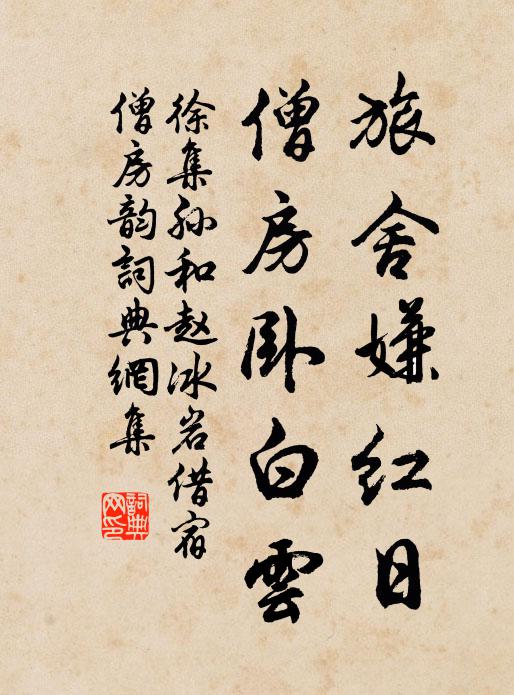 旅舍嫌红日
僧房卧白雲
徐集孙和赵冰岩借宿
僧房韵詞典網集
詞典
网印